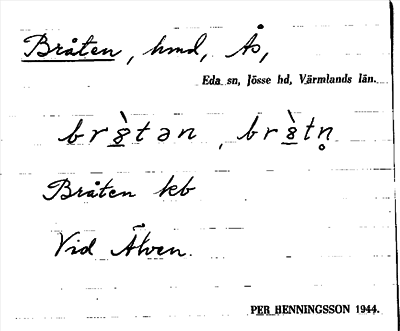 Bråten, hmd, Ås,
Eda sn, Jösse hd, Värmlands län.
brò̲tən, brò̲tn̥
Bråten kb
Vid Älven.
PER HENNINGSSON 1944.